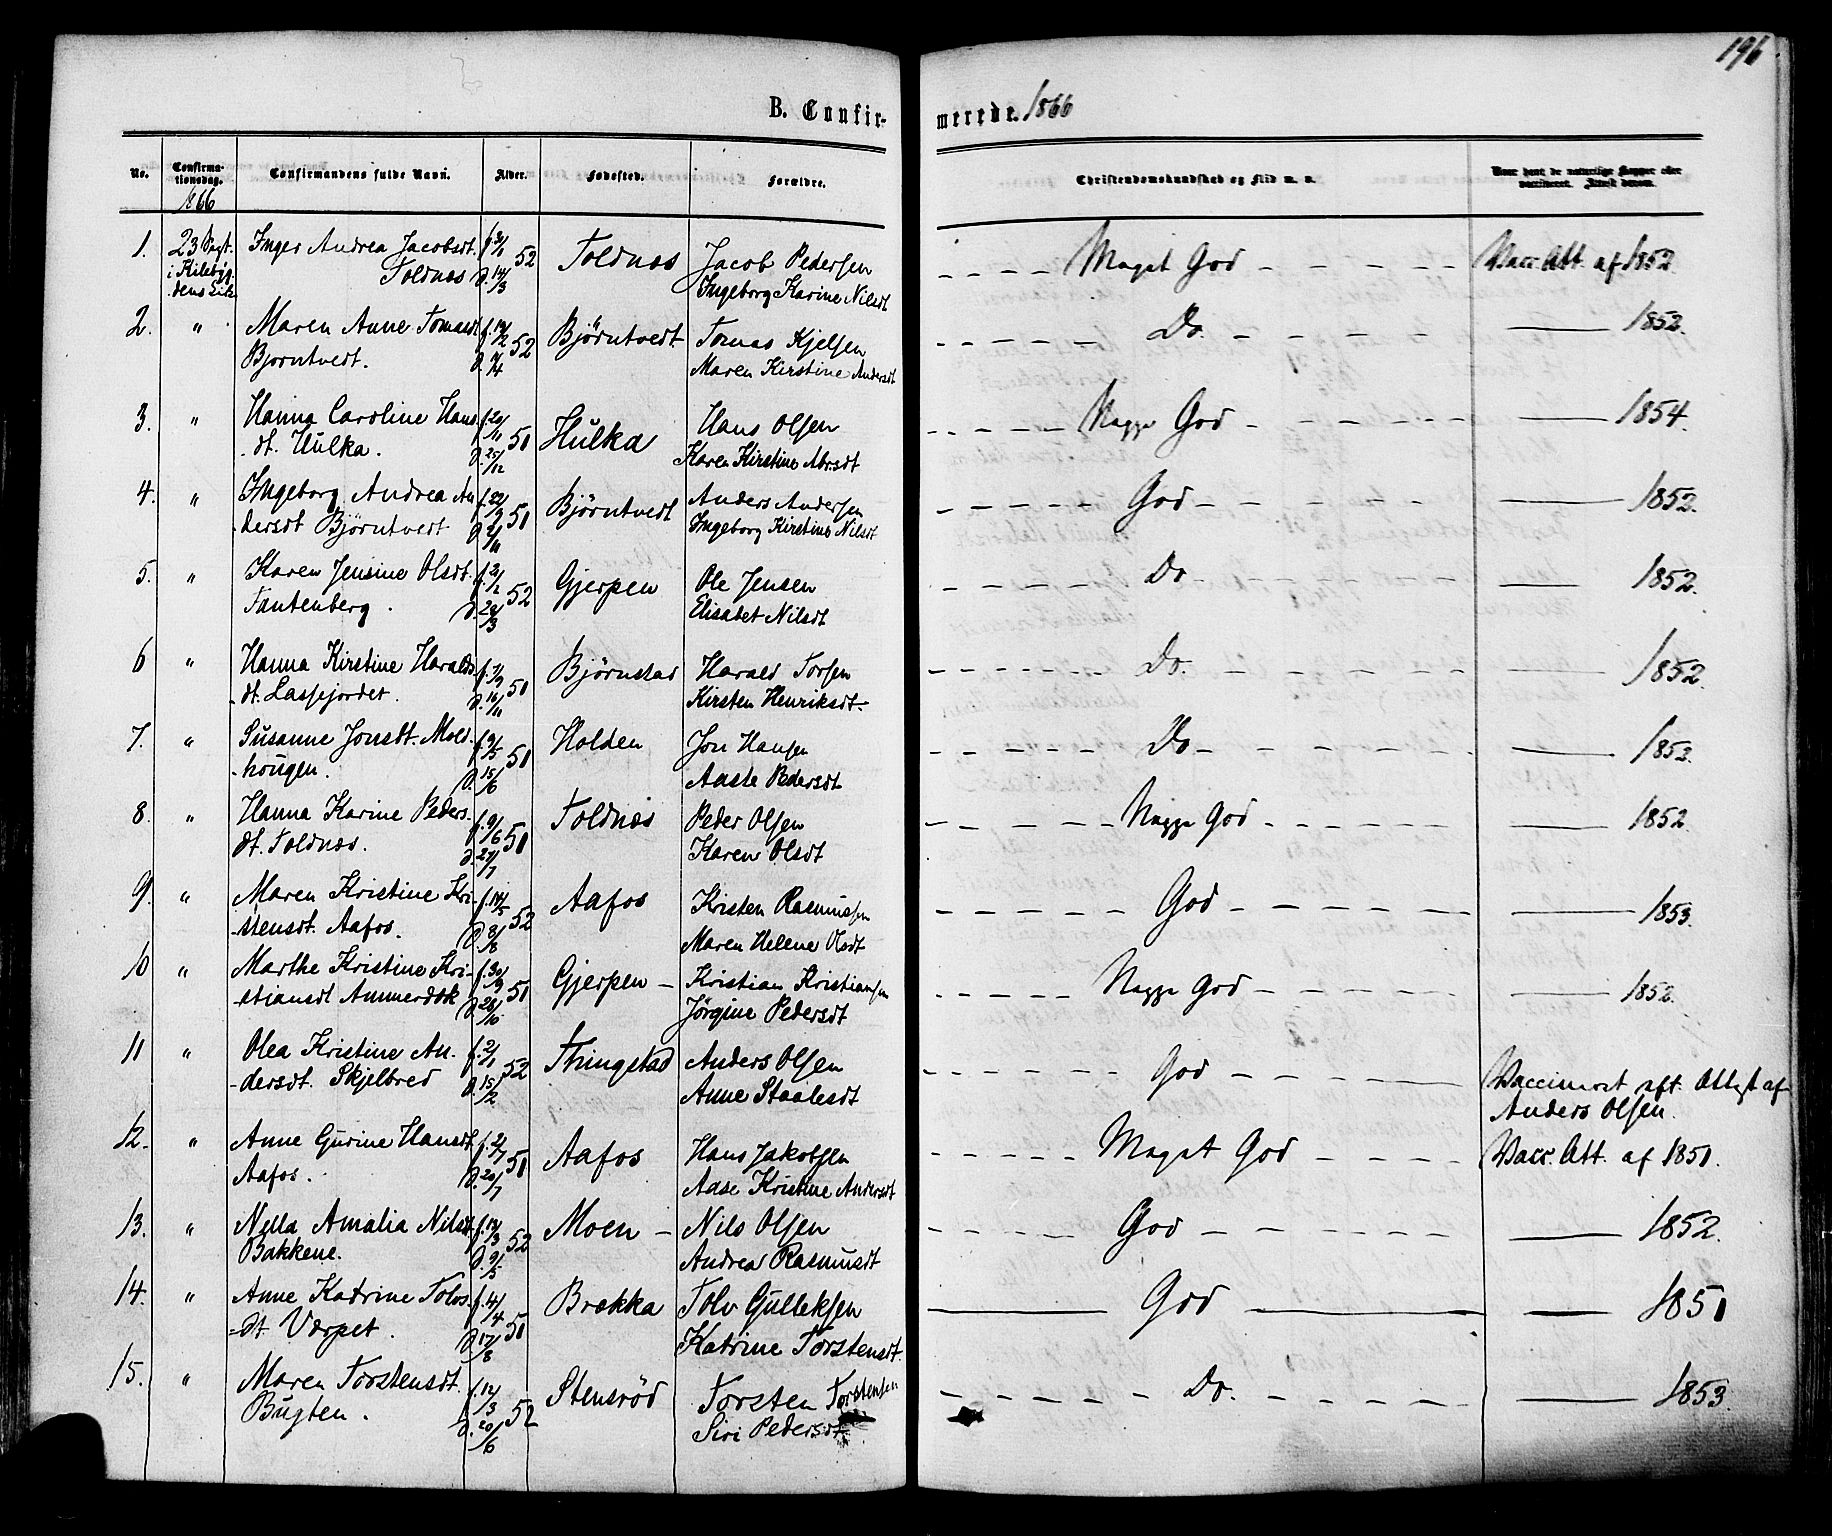 196
B. Confirmerede. 1866
No. Confirmationsdag. Confirmandens fulde Navn. Alder. Fødested. Forældre. Christendomskundskab og Flid m. v. Har havt de naturlige Kopper eller vaccineret. Attest derom.
1866
1. 23 Sept. Inger Andrea Jacobsdt. f. 31/1 52 Toldnæs Jacob Pedersen Meget God Vacc. Att. af 1852
i Kilebyg- Toldnæs d. 14/3 Ingeborg Karine Nilsdt
dens
2. " Maren Anne Tomasdt f. 19/2 52 Björntvedt Tomas Kjelsen Do. 1852.
Bjørntvedt. d. 7/4 Maren Kirstine Andersdt
3. " Hanna Caroline Hans f. 20/11 50 Hulka Hans Olsen Nogge God 1854.
dt. Hulka. d. 25/12 Karen Kirstine Abrsdt
4. " Ingeborg Andrea An f. 22/9 51 Björntvedt Anders Andersen God 1852.
dersdt Björntvedt d. 2/11 Ingeborg Kirstine Nilsdt
5. " Karen Jensine Olsdt. f. 2/2 52 Gjerpen Ole Jensen Do. 1852.
Tantenberg. d. 28/3 Elisabet Nilsdt
6 " Hanna Kirstine Haralds f. 7/9 51 Bjørnstad Harald Torsen Do. 1852.
dt. Lassejordet. d. 16/11 Kirsten Henriksdt.
7. " Susanne Jonsdt. Mold- f. 9/5 51 Holden Jon Hansen Do 1853.
hougen. d. 15/6 Aaste Pedersdt
8. " Hanna Karine Peders- f. 9/6 51 Toldnæs Peder Olsen Nogge God 1852
dt. Toldnæs. d. 27/7 Karen Olsdt
9. " Maren Kristine Kri- f. 14/5 52 Aafos Kristen Rasmussen God 1853.
stensdt. Aafos. d. 8/8 Maren Helene Olsdt
10 " Marthe Kristine Kri- f. 30/9 51 Gjerpen Kristian Kristiansen Nogge God 1852.
stiansdt d. 28/10 Jørgine Pedersdt
11 " Olea Kristine An- f. 2/1 52 Thringstad Anders Olsen God Vaccineret eft. Attest af
dersdt. Skjelbred d. 15/2 Anne Staalesdt Anders Olsen.
12. " Anne Gurine Hansdt. f. 2/7 51 Aafos Hans Jakobsen Meget God Vacc. Att. af 1851.
Aafos. d. 20/7 Aase Kristine Andersdt
13. " Nella Amalia Nilsdt. f. 12/3 52 Moen Nils Olsen God 1852.
Bakkene. d. 9/5 Andrea Rasmusdt
14. " Anne Katrine Tolvs- f. 14/4 51 Brækka Tolv Gulleksen God 1851
dt Værpet. d. 17/8 Katrine Torstensdt.
15. " Maren Torstensdt. f. 12/3 52 Stensröd Torsten Torstensen Do. 1853.
Bugten. d. 20/6 Siri Pedersdt